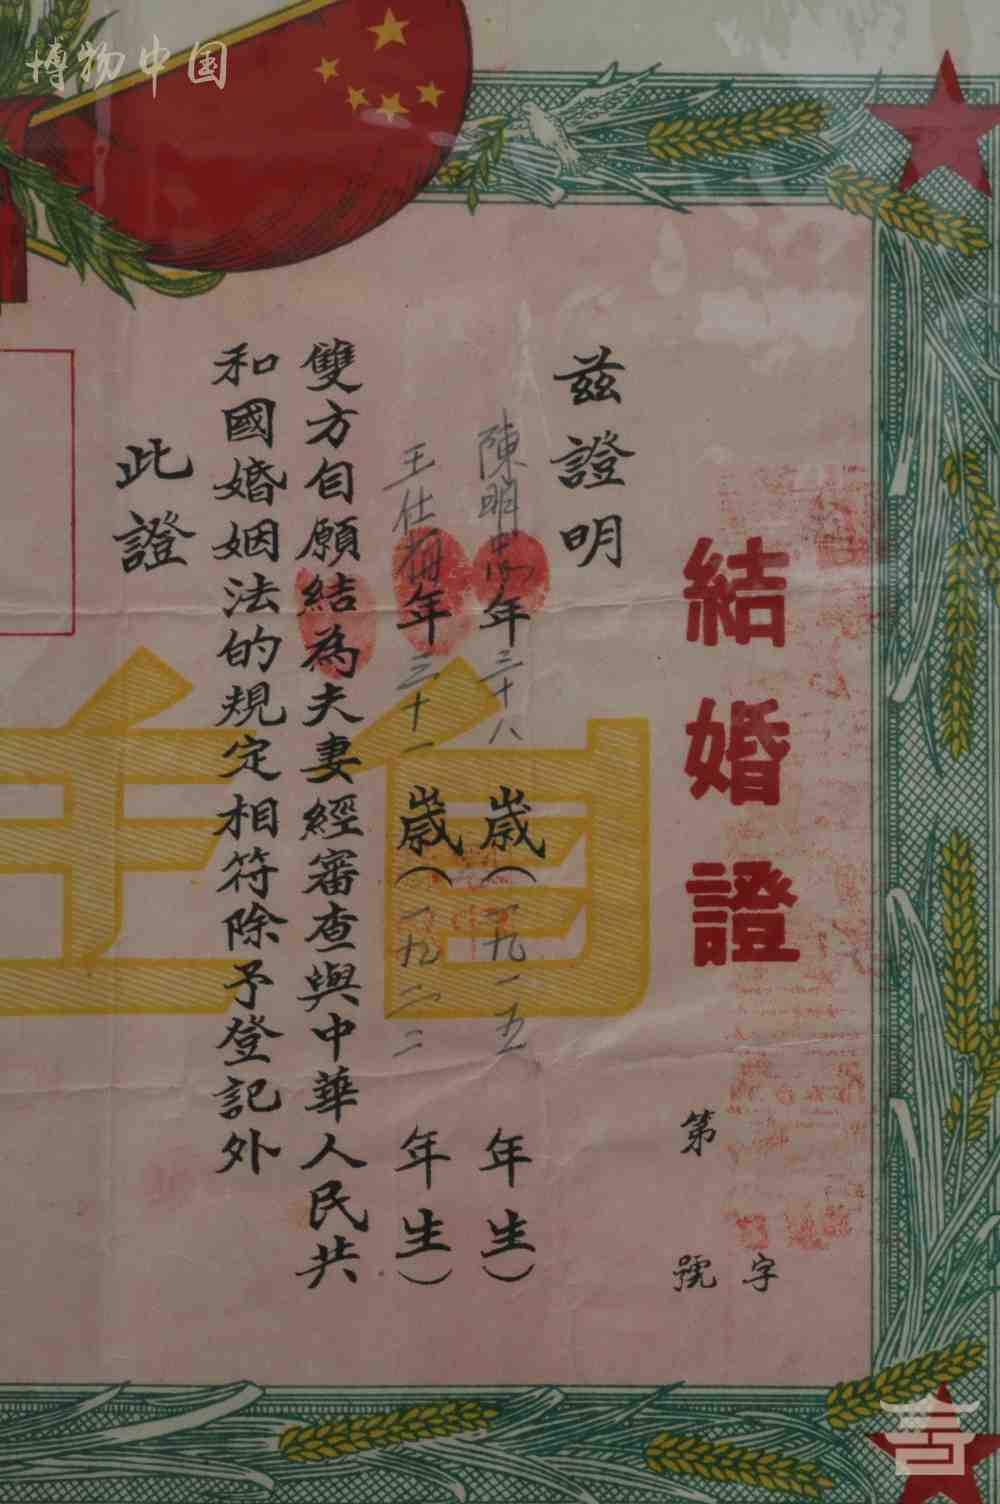 博物中国
結婚證
字
第 號
茲證明
陳明高年三十八歲（一九一五年生）
王仕梅年三十一歲（一九二二年生）
雙方自願結為夫妻經審查與中華人民共
和國婚姻法的規定相符除予登記外
此證
自主